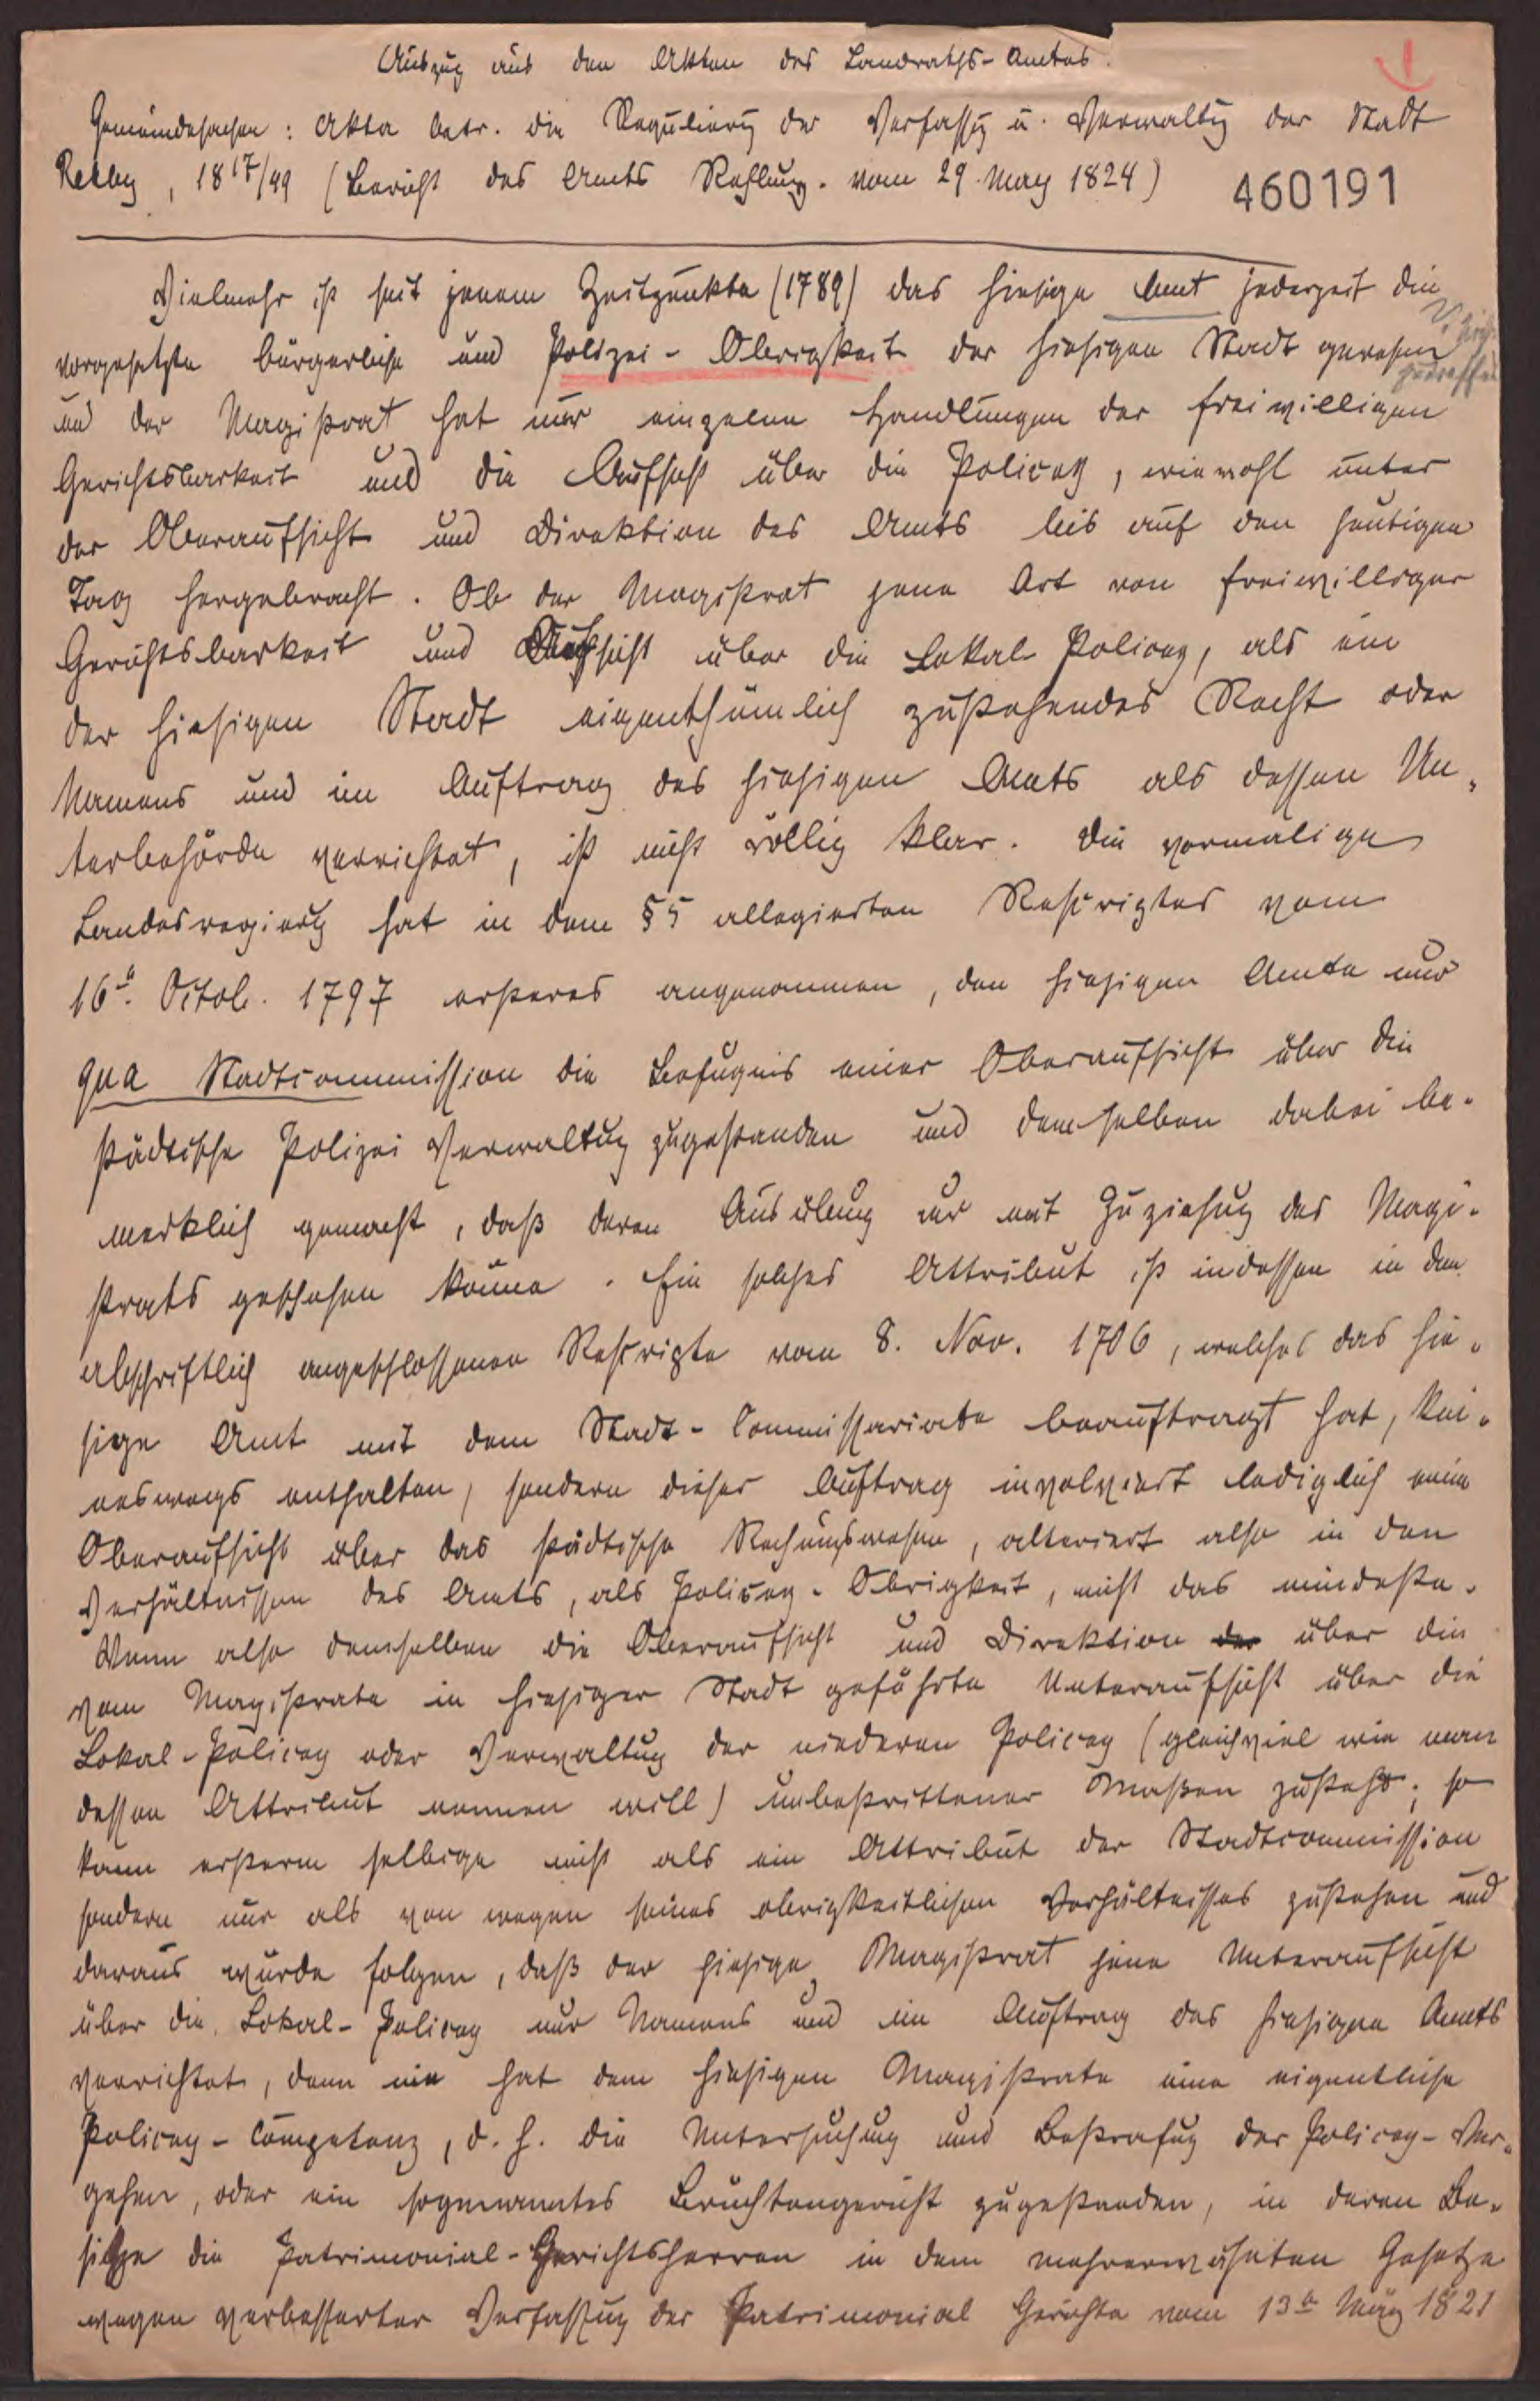 Auszug aus den Akten des Landraths-Amtes.
1
Gemeindesachen: Akta betr. die Regulierg der Verfassg u. Verwaltg der Stadt
Rehbg, 1817/49 (Bericht des Amts Rehburg. vom 29. May 1824)
460191
Vielmehr ist seit jenem Zeitpunkte (1789) das hiesige Amt jederzeit die
vorgesetzte bürgerliche und Polizei-Obrigkeit der hiesigen Stadt gewesen
und der Magistrat hat nur einzelne Handlungen der freiwilligen
Gerichtsbarkeit und die Aufsicht über die Policey, wiewohl unter
der Oberaufsicht und Direktion des Amts bis auf den heutigen
Tag hergebracht. Ob der Magistrat jene Art von freiwilliger
Gerichtsbarkeit und Aufsicht über die Lokal Policey, als ein
der hiesigen Stadt eigenthümlich zustehendes Recht oder
Namens und im Auftrag des hiesigen Amts als dessen Un-
terbehörde verrichtet, ist nicht völlig klar. Die vormalige
Landesregierg hat in dem §5 allegierten Rescriptes vom
16t. Octob. 1797 ersteres angenommen, den hiesigen Amte nur
qua Stadtcommission die Befugnis einer Oberaufsicht über die
städtische Polizei Verwaltug zugestanden und demselben dabei be-
merklich gemacht, daß deren Ausübung nur mit Zuziehug des Magi-
strats geschehen könne. Ein solches Attribut ist indessen in dem
abschriftlich angeschlossenen Rescripte vom 8. Nov. 1706, welches das hie-
sige Amt mit dem Stadt-Commissariate beauftragt hat, kei-
neswegs enthalten, sondern dieser Auftrag involviert lediglich eine
Oberaufsicht über das städtische Rechnungswesen, alteriert also in den
Verhältnissen des Amts, als Policey-Obrigkeit, nicht das mindeste.
Wenn also demselben die Oberaufsicht und Direktion der über die
vom Magistrate in hiesiger Stadt geführte Unteraufsicht über die
Lokal-Policey oder Verwaltug der niederen Policey (gleichviel wie man
dessen Attribut nennen will) unbestrittener Maßen zusteht; so
kann ersterm selbige nicht als ein Attribut der Stadtcommission
sondern nur als von wegen seines obrigkeitlichen Verhältnisses zustehen und
daraus würde folgen, daß der hiesige Magistrat jene Unteraufsicht
über die Lokal-Policey nur Namens und im Auftrag des hiesigen Amts
verrichtet, denn nie hat dem hiesigen Magistrate eine eigentliche
Policey-Competenz, d.h. die Untersuchung und Bestrafug der Policey-Ver-
gehen, oder ein sogenanntes Bruchtengericht zugestanden, in deren Be-
sitze die Patrimonial-Gerichtsherren in dem mehrerwähnten Gesetze
wegen verbesserter Verfassug der Patrimonial Gerichte vom 13t März 1821